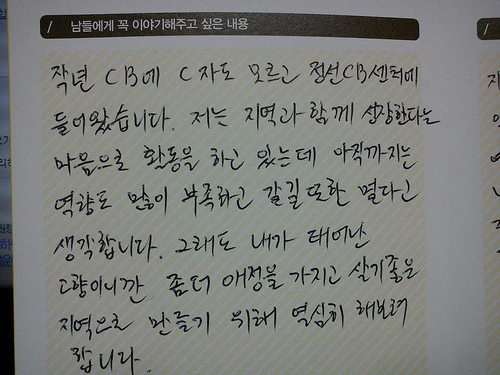 / 남들에게 꼭 이야기해주고 싶은 내용
작년 CB에 C자도 모르고 정선CB센터에
들어왔습니다. 저는 지역과 함께 성장한다는
마음으로 활동을 하고 있는데 아직까지는
역량도 많이 부족하고 갈길 또한 멀다고
생각합니다. 그래도 내가 태어난
고향이니깐 좀더 애정을 가지고 살기좋은
지역으로 만들기 위해 열심히 해보려
합니다.